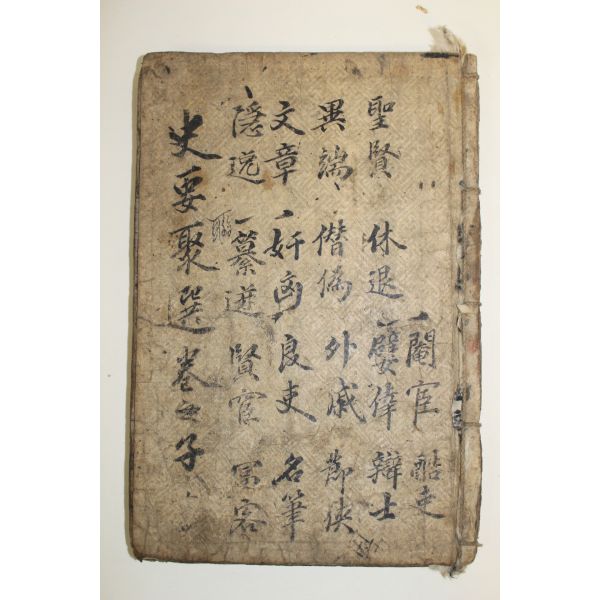 閹宦 酷吏
聖賢 休退 嬖倖 辯士
異端 僭偽 外戚 節俠
文章 奸凶 良吏 名筆
隱逸 簒逆 賢宦
史要聚選卷之子